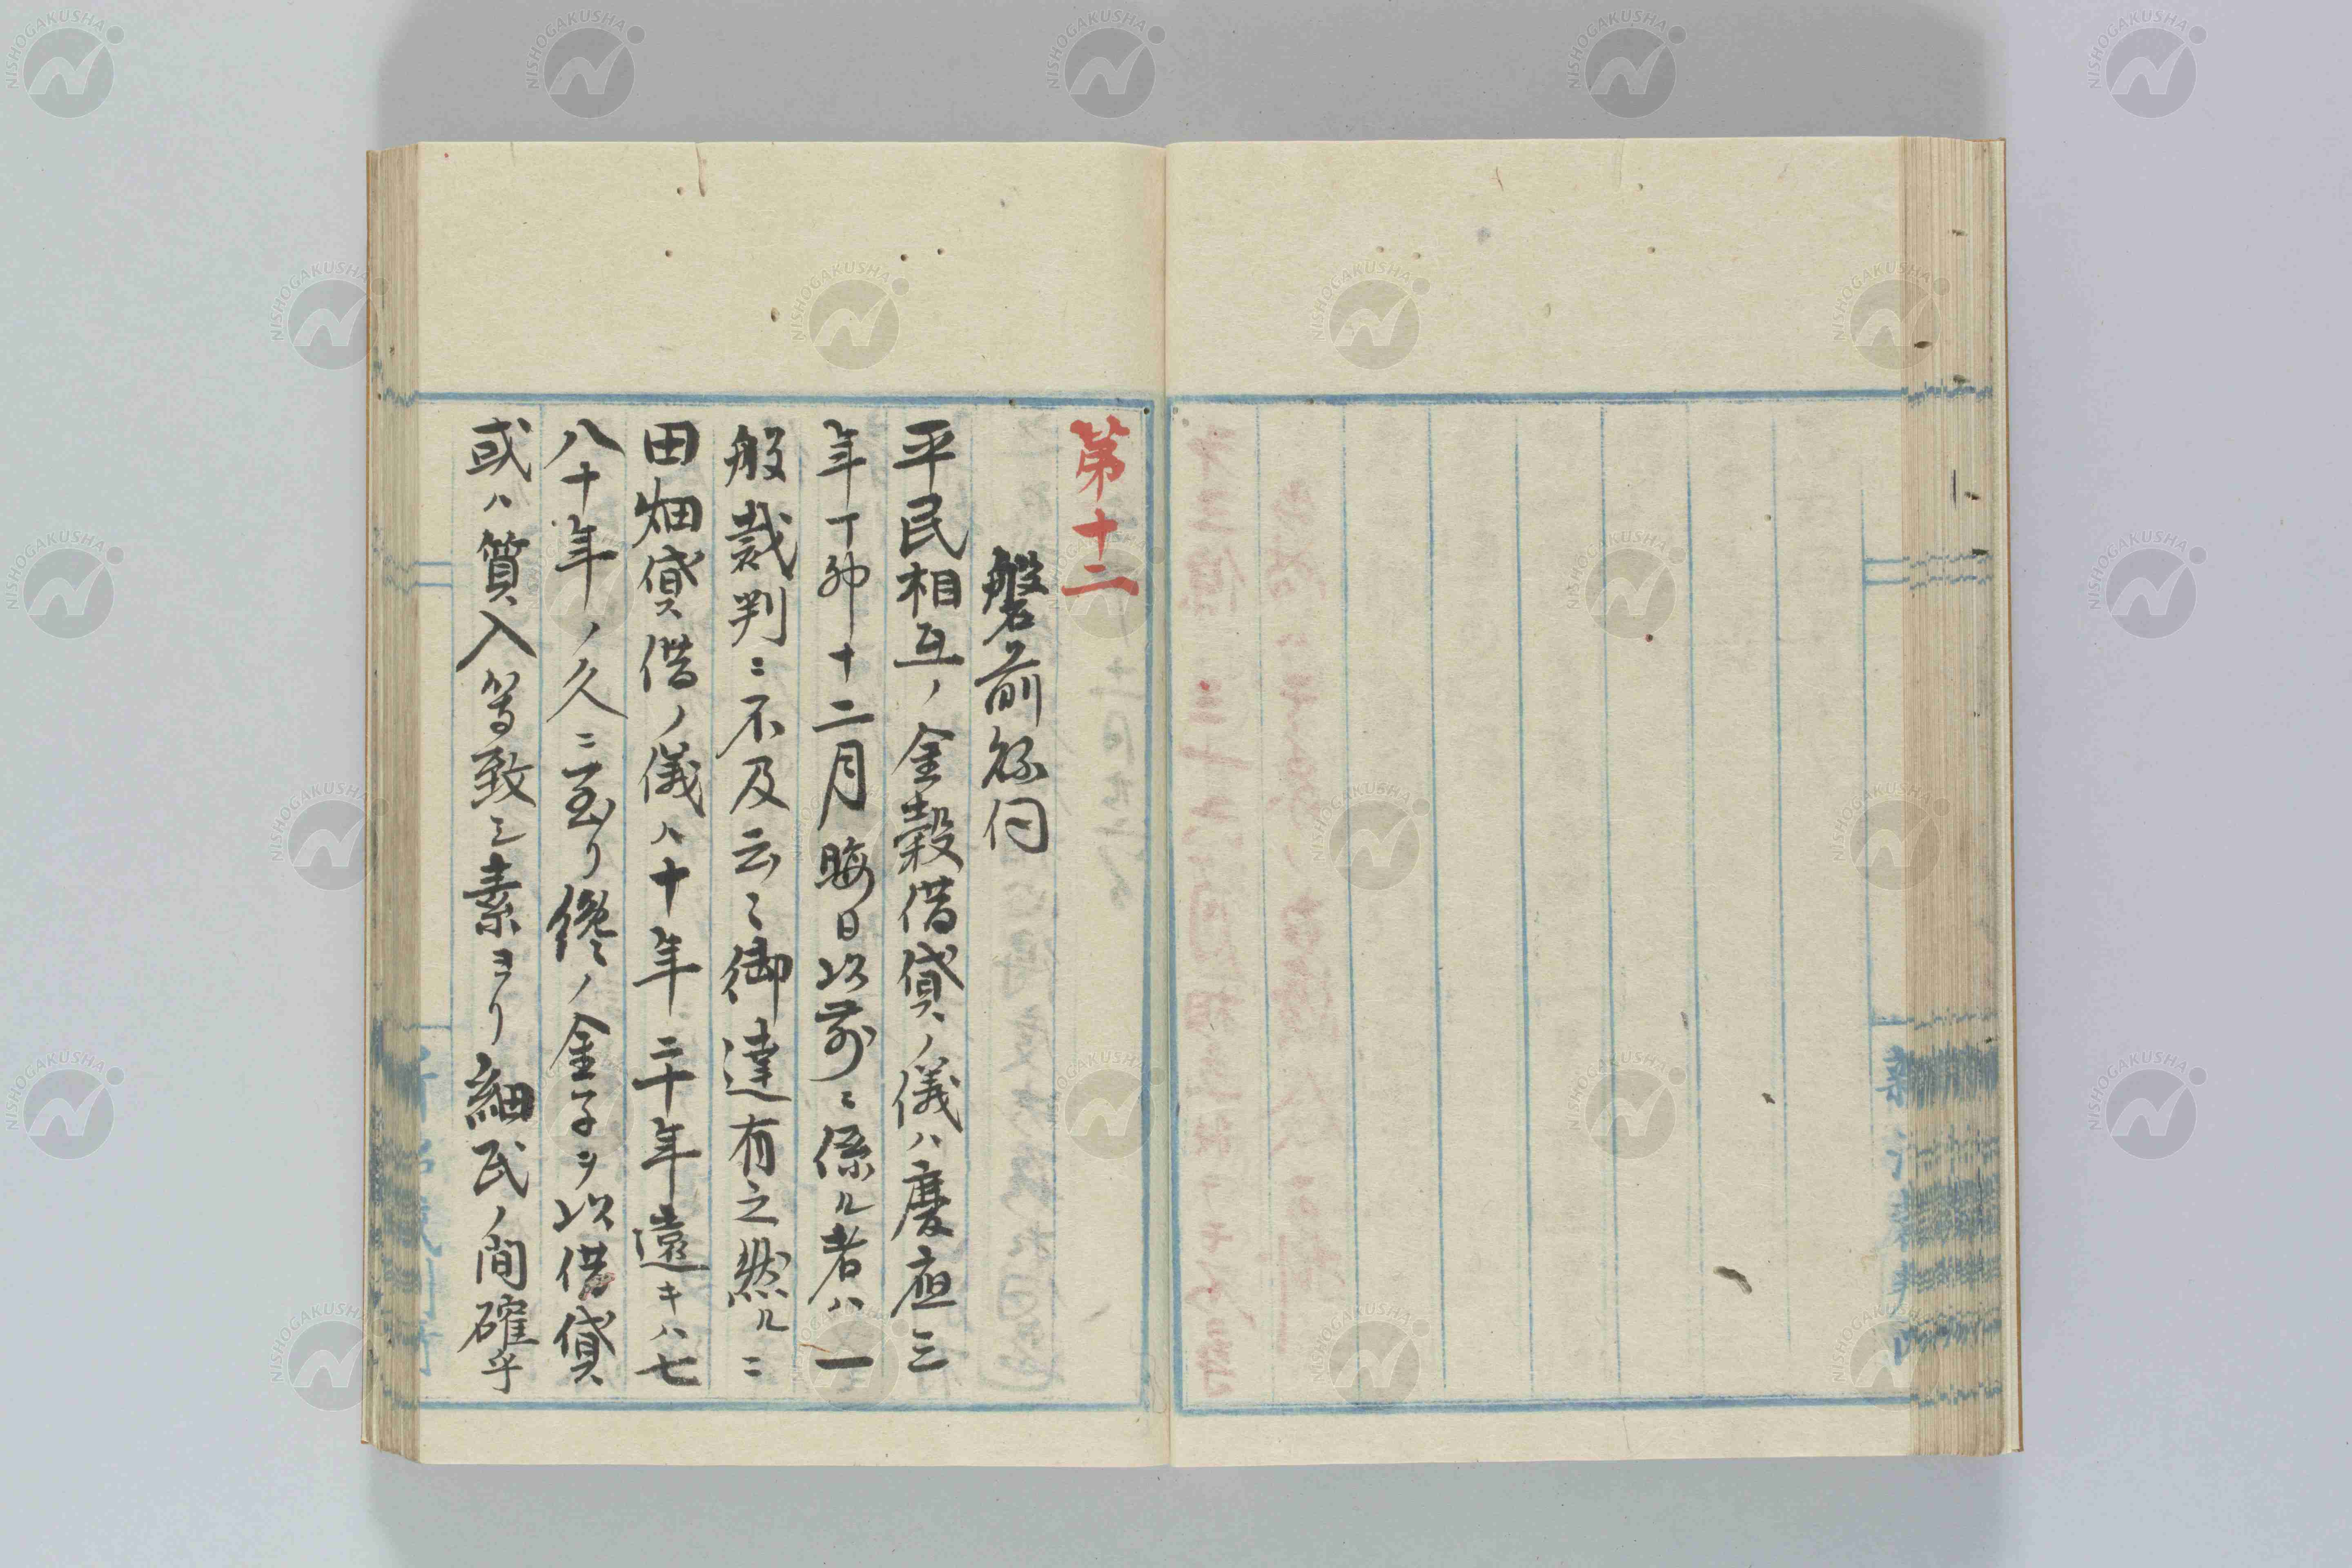 第十二
磐前縣伺
平民相互ノ金穀借貸ノ儀ハ慶應三
年丁卯十二月晦日以前ニ係ル者ハ一
般裁判ニ不及云々御達有之然ルニ
田畑貸借ノ儀ハ十年二十年遠キハ七
八十年ノ久ニ至リ纔ノ金子ヲ以借貸
或ハ質入等致シ素ヨリ細民ノ間確乎